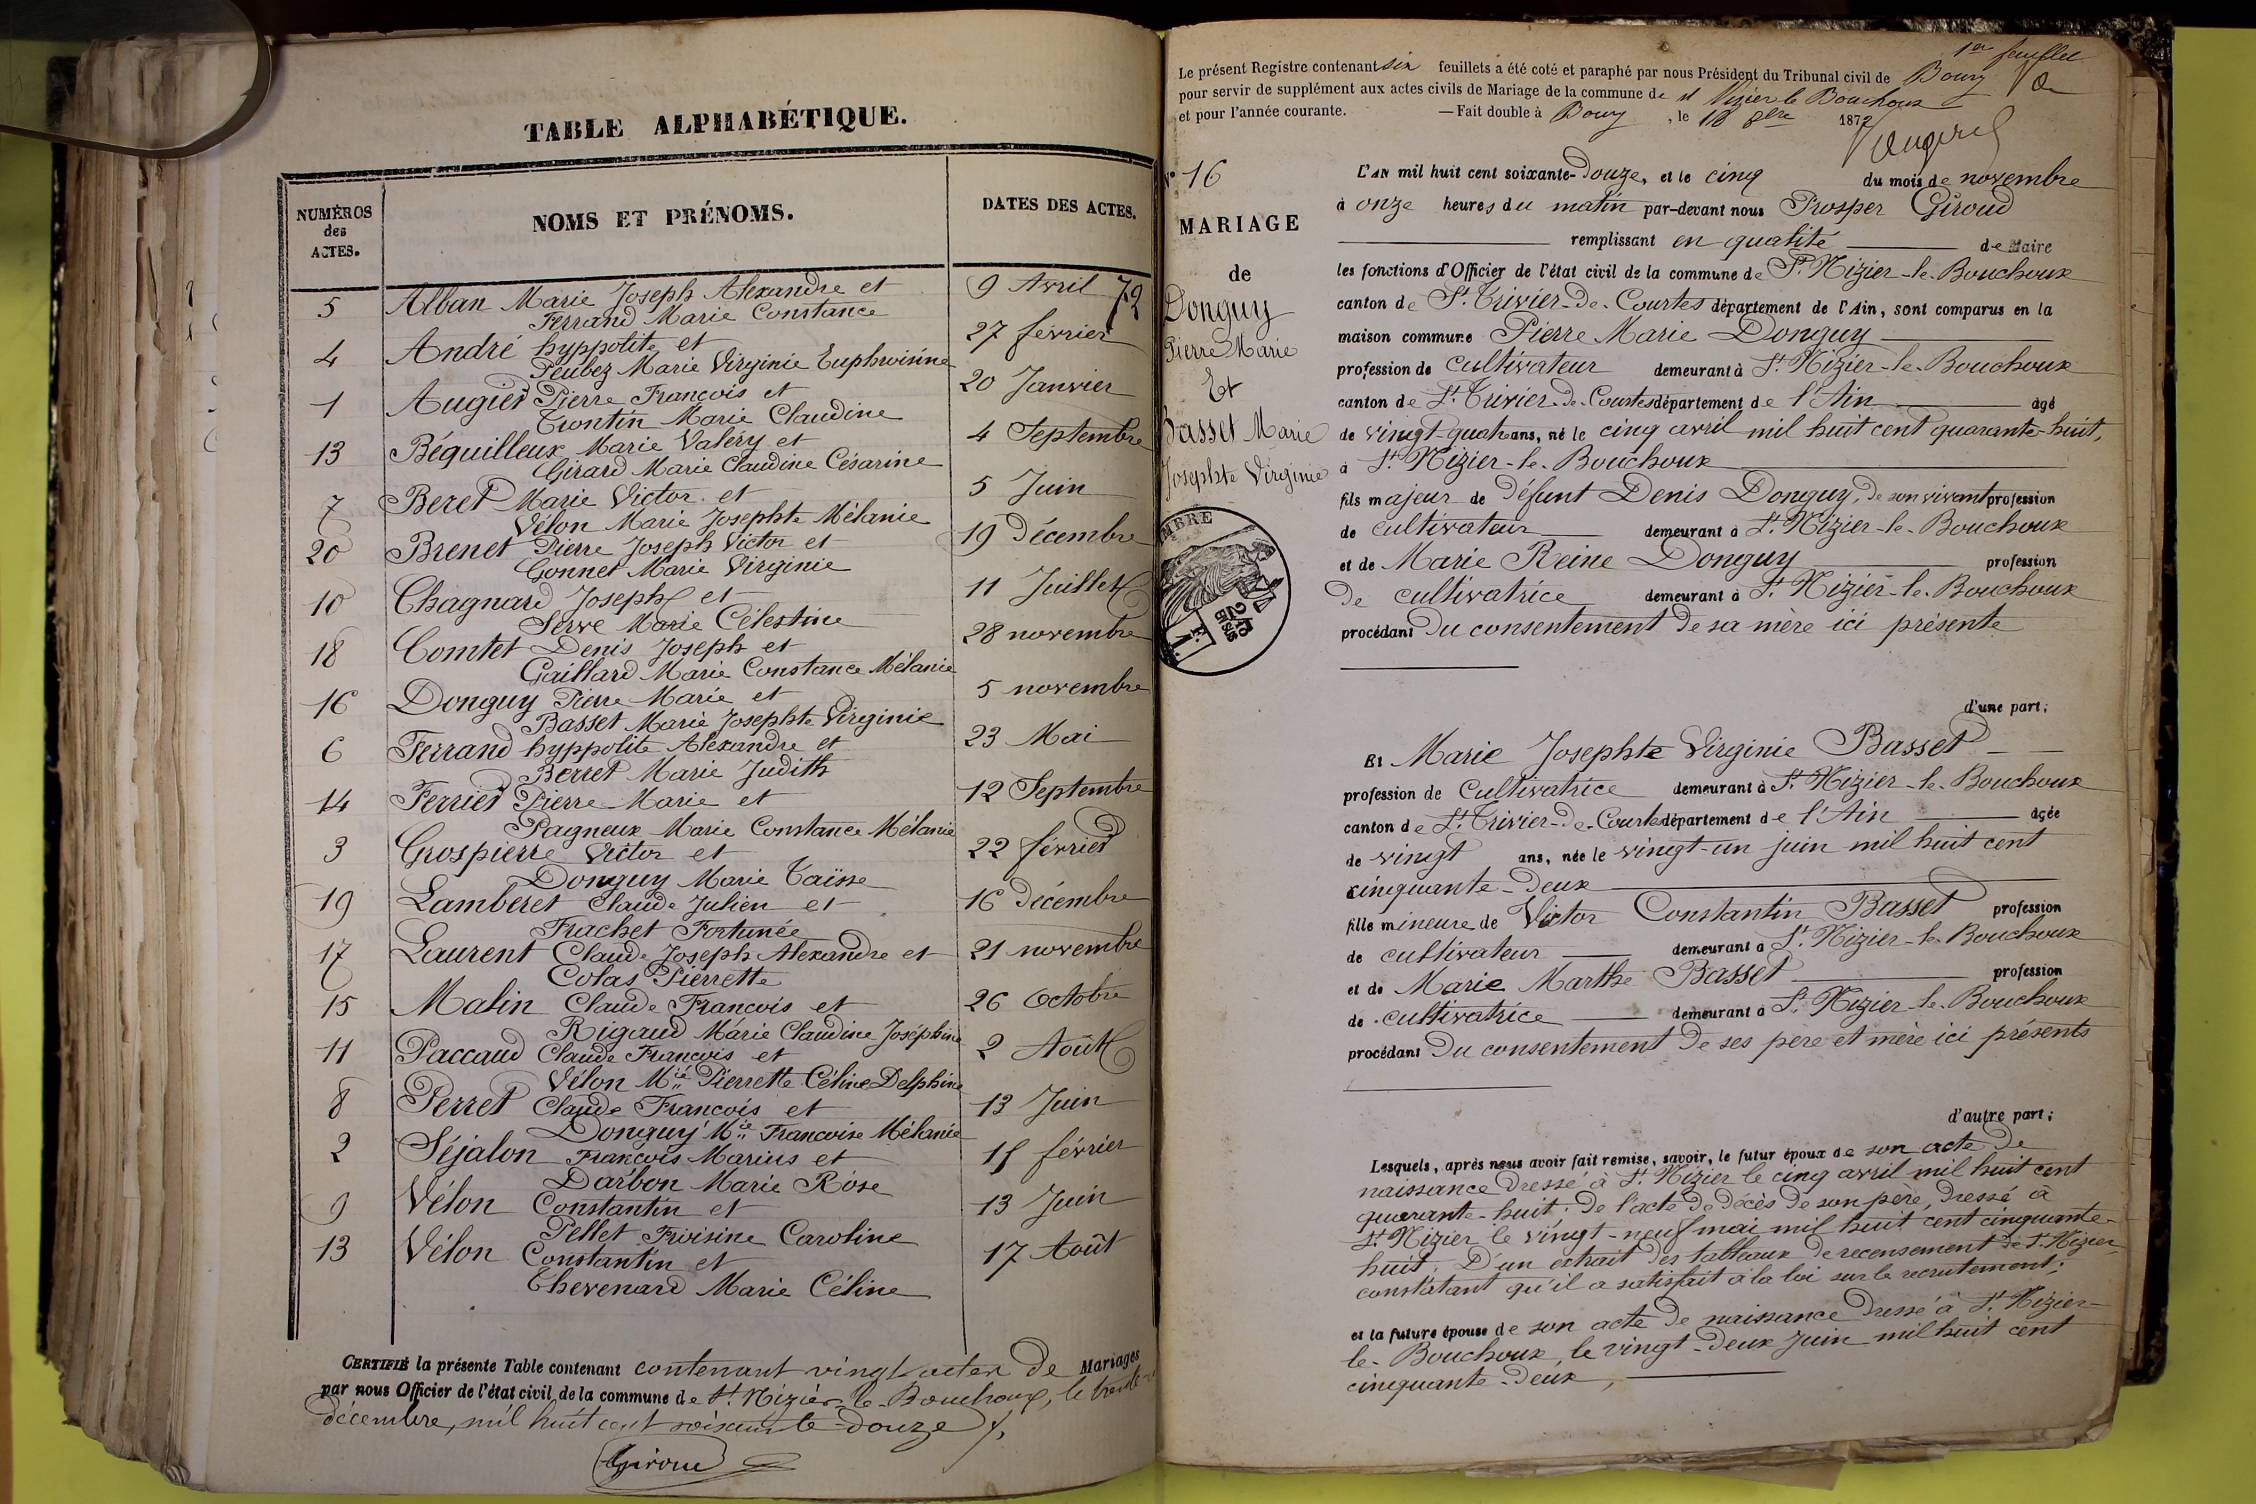 TABLE ALPHABÉTIQUE.
NUMÉROS des ACTES.
NOMS ET PRÉNOMS.
DATES DES ACTES.
5 Alban Marie Joseph Alexandre et 9 Avril 72
Ferrand Marie Constance
4 André hyppolite et 27 février
Peubez Marie Virginie Euphroisine
1 Augier Pierre François et 20 Janvier
Trontin Marie Claudine
13 Béguilleux Marie Valéry et 4 Septembre
Girard Marie Claudine Césarine
7 Beret Marie Victor et 5 Juin
Vélon Marie Josephte Mélanie
20 Brenet Pierre Joseph Victor et 19 Décembre
Gonnet Marie Virginie
10 Chagnard Joseph et 11 Juillet
Serve Marie Célestine
18 Comtet Denis Joseph et 28 novembre
Gaillard Marie Constance Mélanie
16 Donguy Pierre Marie et 5 novembre
Basset Marie Josephte Virginie
6 Ferrand hyppolite Alexandre et 23 Mai
Berret Marie Judith
14 Ferrier Pierre-Marie et 12 Septembre
Pagneux Marie Constance Mélanie
3 Grospierre Victor et 22 février
Donguy Marie Taïsse
19 Lamberet Claude Julien et 16 Décembre
Frachet Fortunée
17 Laurent Claude Joseph Alexandre et 21 novembre
Colas Pierrette
15 Matin Claude François et 26 Octobre
Rigaud Marie Claudine Joséphine
11 Paccaud Claude François et 2 Août
Vélon Mie Pierrette Céline Delphine
8 Perret Claude François et 13 Juin
Donguy Mie Francoise Mélanie
2 Séjalon François Marius et 15 février
Darbon Marie Rose
9 Vélon Constantin et 13 Juin
Pellet Froisine Caroline
13 Vélon Constantin et 17 Août
Thevenard Marie Céline
CERTIFIÉ la présente Table contenant contenant vingt actes de Mariages
par nous Officier de l'état civil de la commune de St. Nizier-le-Bouchoux, le trente
décembre, mil huit cent soixante-douze
Giroud
1er feuillet
Le présent Registre contenant six feuillets a été coté et paraphé par nous Président du Tribunal civil de Bourg
pour servir de supplément aux actes civils de Mariage de la commune de st Nizier le Bouchoux
et pour l'année courante. — Fait double à Bourg, le 18 8bre 1872
N° 16
MARIAGE
de
Donguy
Pierre Marie
Et
Basset Marie
Josephte Virginie
L'AN mil huit cent soixante-Douze, et le cinq du mois de novembre
à onze heures du matin par-devant nous Prosper Giroud
remplissant en qualité de Maire
les fonctions d'Officier de l'état civil de la commune de St. Nizier-le-Bouchoux
canton de St. Trivier-De-Courtes département de l'Ain, sont comparus en la
maison commune Pierre Marie Donguy
profession de cultivateur demeurant à St. Nizier-le-Bouchoux
canton de St. Trivier-De-Courtes département de l'Ain âgé
de vingt-quatre ans, né le cinq avril mil huit cent quarante-huit,
à St. Nizier-le-Bouchoux
fils majeur de défunt Denis Donguy, De son vivant profession
de cultivateur demeurant à St. Nizier-le-Bouchoux
et de Marie Reine Donguy profession
De cultivatrice demeurant à St. Nizier-le-Bouchoux
procédant Du consentement De sa mère ici présente
d'une part;
Et Marie Josephte Virginie Basset
profession de Cultivatrice demeurant à St. Nizier-le-Bouchoux
canton de St. Trivier-De-Courtes département de l'Ain âgée
de vingt ans, née le vingt-un juin mil huit cent
cinquante-Deux
fille mineure de Victor Constantin Basset profession
de cultivateur demeurant à St. Nizier-le-Bouchoux
et de Marie Marthe Basset profession
de cultivatrice demeurant à St. Nizier-le-Bouchoux
procédant Du consentement De ses père et mère ici présents
d'autre part;
Lesquels, après nous avoir fait remise, savoir, le futur époux de son acte De
naissance Dressé à St. Nizier le cinq avril mil huit cent
quarante-huit; De l'acte De Décès De son père, Dressé à
St. Nizier le vingt-neuf mai mil huit cent cinquante-
huit; D'un extrait Des tableaux De recensement De St. Nizier
constatant qu'il a satisfait à la loi sur le recrutement;
et la future épouse de son acte De naissance Dressé à St. Nizier-
le-Bouchoux, le vingt-Deux Juin mil huit cent
cinquante-Deux,